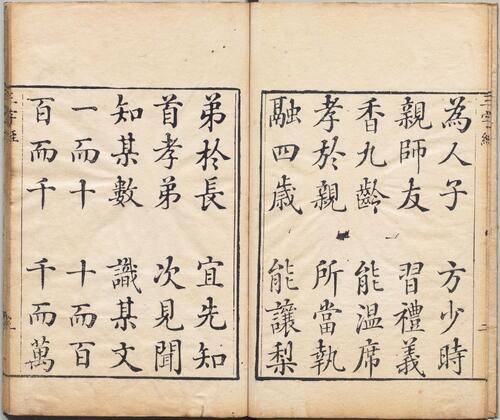 三字經
為人子 方少時
親師友 習禮義
香九齡 能温席
孝於親 所當執
融四歲 能讓梨
二
弟於長 宜先知
首孝弟 次見聞
知某數 識某文
一而十 十而百
百而千 千而萬
三字經